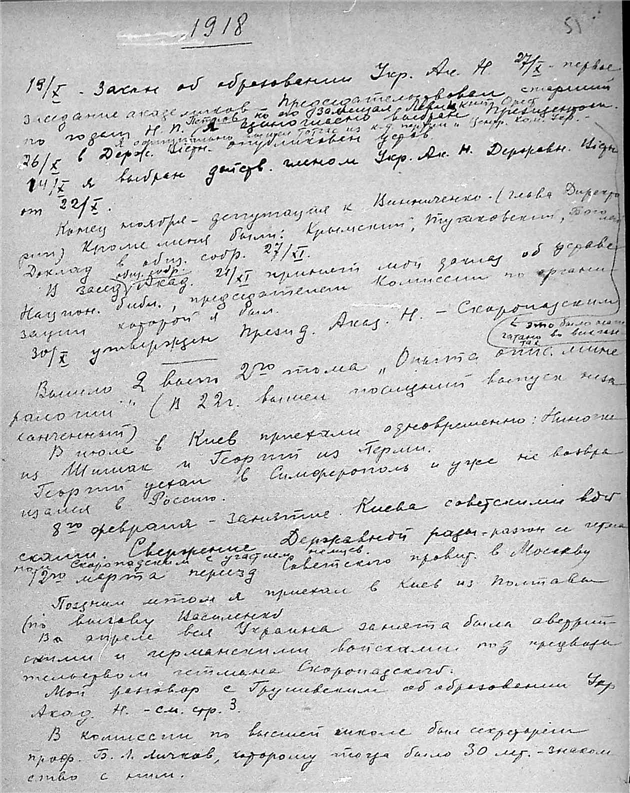 1918
51
19/X - Закон об образовании Укр. Ак. Н. 27/X - первое
заседание академиков - Председательствовал старший
по годам Н. П. Петров, но его замещал Левицкий Орест
(Я единогласно выбран Президентом.
26/X в Держ. Вістн. опубликован указ
14/X я выбран действ. членом Укр. Ак. Н. Державн. Вістн
от 22/X.
Конец ноября - депутация к Винниченко - (глава Директо
рии) Кроме меня были: Крымский, Тутковский,
Доклад в общ. собр. 27/XI.
В засед. общ. собр. Акад. принят мой доклад об уставе
Национ. библ., председателем Комиссии по органи
зации которой я был.
30/X утвержден презид. Акад. Н. - Скоропадским
(Это было
так
Вышло 2 вып. 2го тома "Опыта опис. мине
ралогии". (В 22г. вышел последний выпуск неза
конченный)
В июле в Киев приехали одновременно: Ниночка
из Шишак и Георгий из Перми.
Георгий уехал в Симферополь и уже не возвра
щался в Россию.
8го февраля - занятие Киева советскими вой
сками. Свержение Державной рады - разгон ее герма
нами Скоропадским с участием немцев.
12го марта переезд Советского правит. в Москву
Поздним летом я приехал в Киев из Полтавы
(по вызову Василенко
В апреле вся Украина занята была австрий
скими и германскими войсками под предводи
тельством гетмана Скоропадского.
Мой разговор с Грушевским об образовании Укр
Акад. Н. - см. стр. 3.
В комиссии по высшей школе был секретарем
проф. Б. Л. Личков, которому тогда было 30 лет. - знаком
ство с ним.